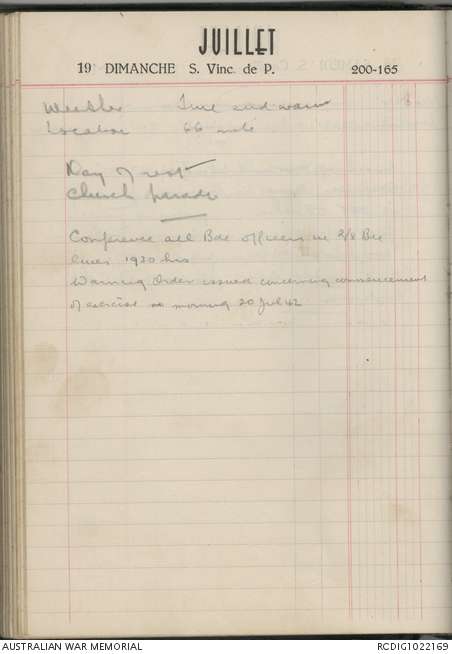 JUILLET
19 DIMANCHE S. Vinc. de P. 200-165
Weather Fine and warm
Location 66 mile
Day of rest
Church parade
Conference all Bde officers in 2/8 Bn
lines 1930 hrs
Warning Order issued concerning commencement
of exercise on morning 20 Jul 42
AUSTRALIAN WAR MEMORIAL
RCDIG1022169